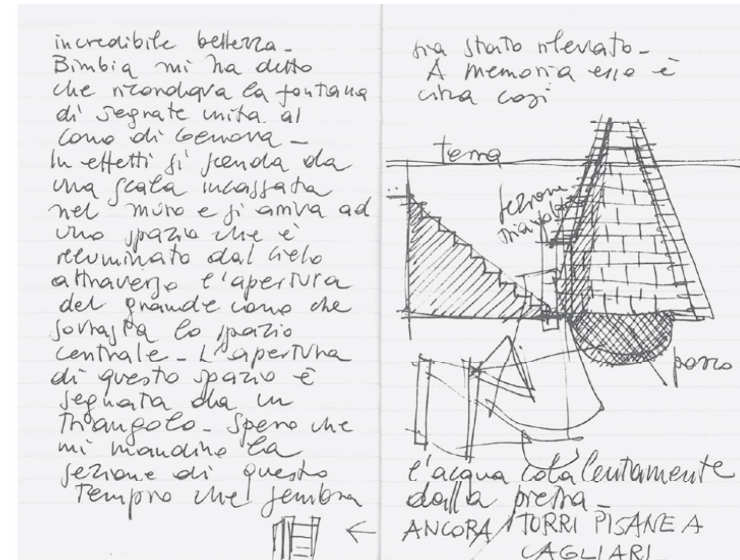 incredibile bellezza_
Bimbia mi ha detto
che ricordava la fontana
di segrate unita al
cono di Genova_
In effetti si scende da
una scala incassata
nel muro e si arriva ad
uno spazio che è
illuminato dal cielo
attraverso l'apertura
del grande cono che
sovrasta lo spazio
centrale_ L'apertura
di questo spazio è
segnata da un
triangolo_ Spero che
mi mandino la
sezione di questo
Tempio che sembra
sia stato rilevato_
A memoria esso è
circa così
terra
sezione
pozzo
l'acqua cola lentamente
dalla pietra_
ANCORA TORRI PISANE A
CAGLIARI